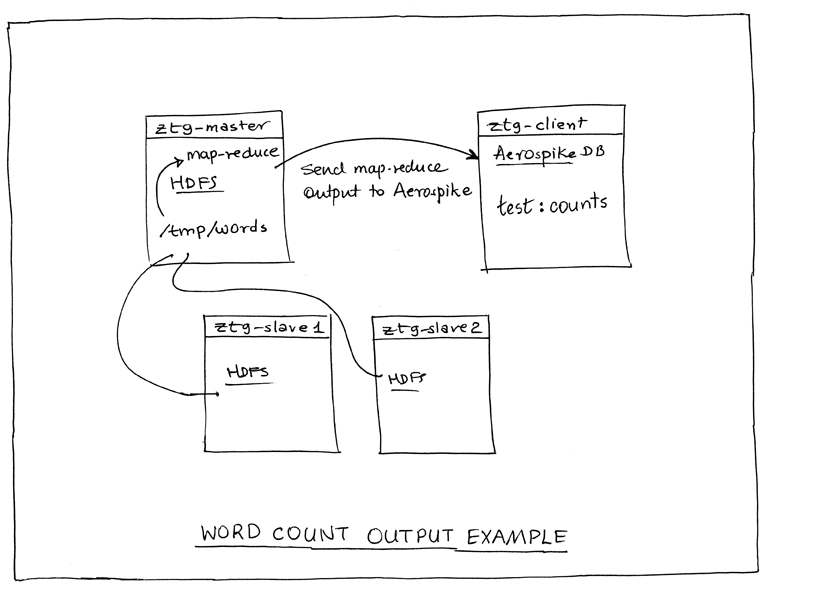 ztg-master
map-reduce
HDFS
/tmp/words
Send map-reduce
Output to Aerospike
ztg-client
Aerospike DB
test:counts
ztg-slave1
HDFS
ztg-slave2
HDFS
WORD COUNT OUTPUT EXAMPLE